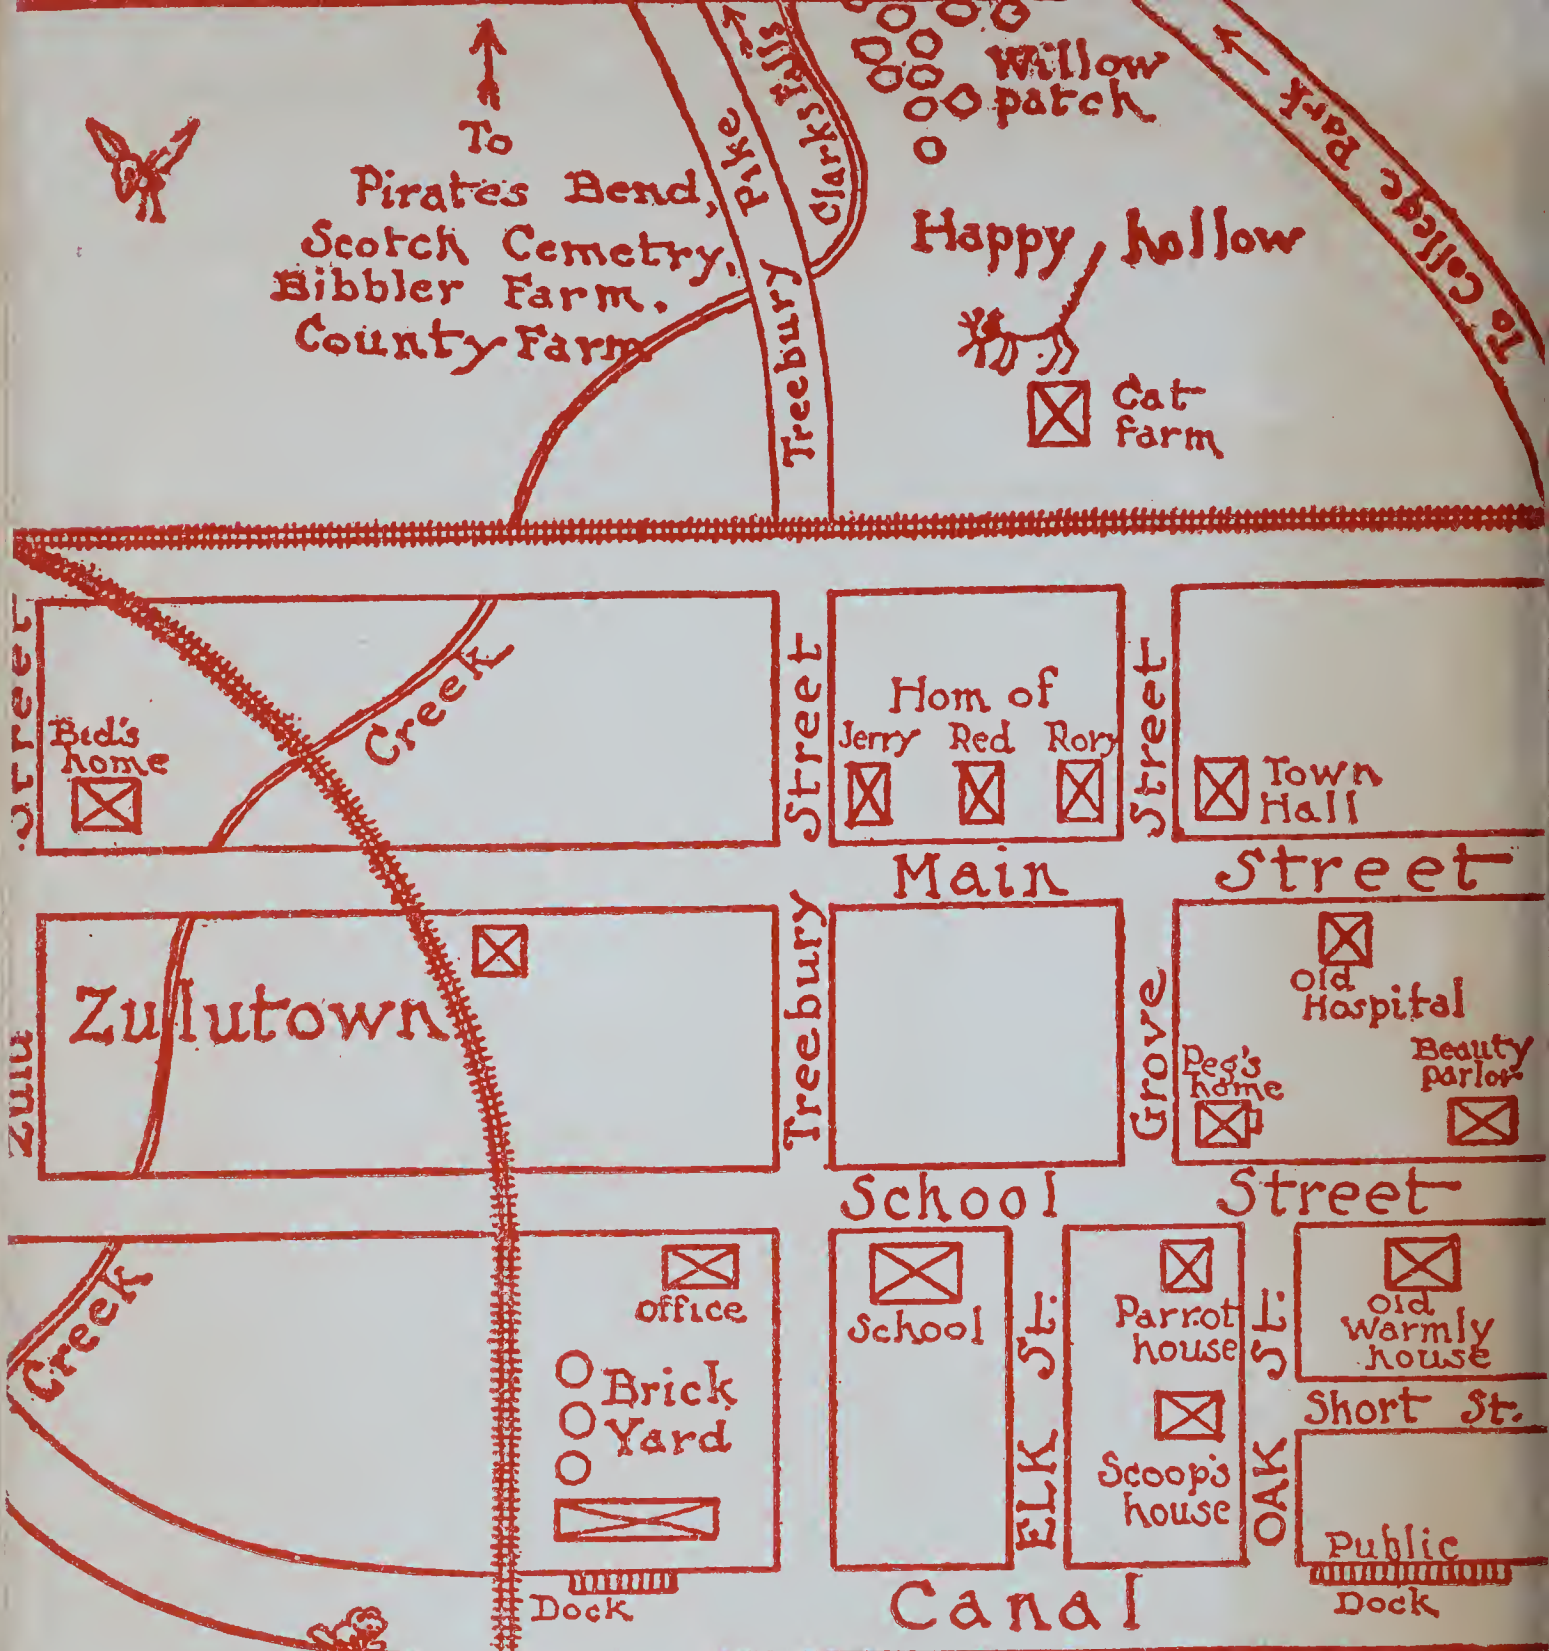 To
Pirates Bend,
Scotch Cemetry,
Bibbler Farm.
County Farm
Treebury Pike
Clarks Falls
Willow
patch
To College Park
Happy hollow
Cat
farm
Street
Bid's
home
Creek
Street
Hom of
Jerry Red Rory
Street
Town
Hall
Main Street
Zulutown
Zulu
Treebury
Grove
Old
Hospital
Peg's
home
Beauty
parlor
School Street
Creek
office
Brick
Yard
School
ELK St.
Parrot
house
Scoop's
house
OAK St.
Old
Warmly
house
Short St.
Dock
Canal
Public
Dock